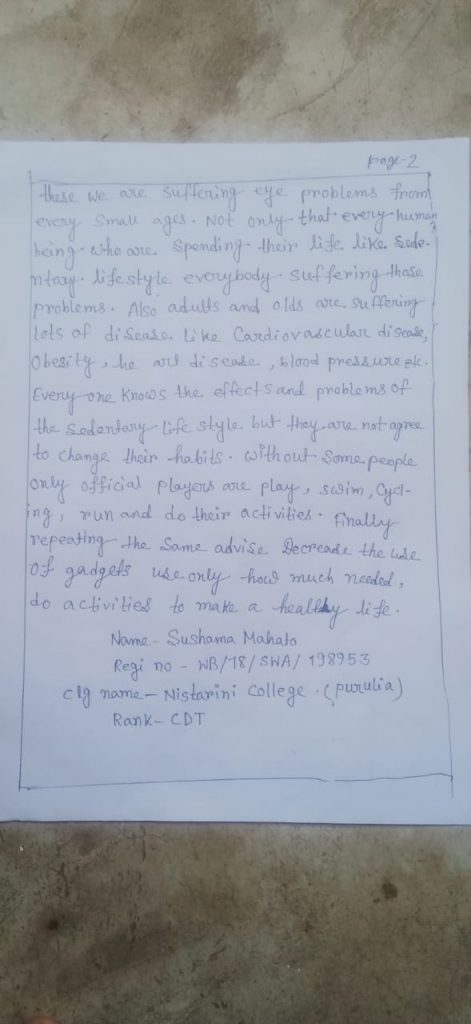 page-2
these we are suffering eye problems from
every small ages. Not only that every human
being who are spending their life like Sede-
ntary lifestyle everybody suffering those
problems. Also adults and olds are suffering
lots of disease. Like Cardiovascular disease,
Obesity, he art disease, blood pressure etc.
Every one knows the effects and problems of
the sedentary life style but they are not agree
to change their habits. without some people
only official players are play, swim, Cycl-
ing, run and do their activities. Finally
repeating the same advise Decrease the use
of gadgets use only how much needed,
do activities to make a healthy life.
Name - Sushama Mahato
Regi no - WB/18/SWA/198953
clg name - Nistarini College. (purulia)
Rank - CDT